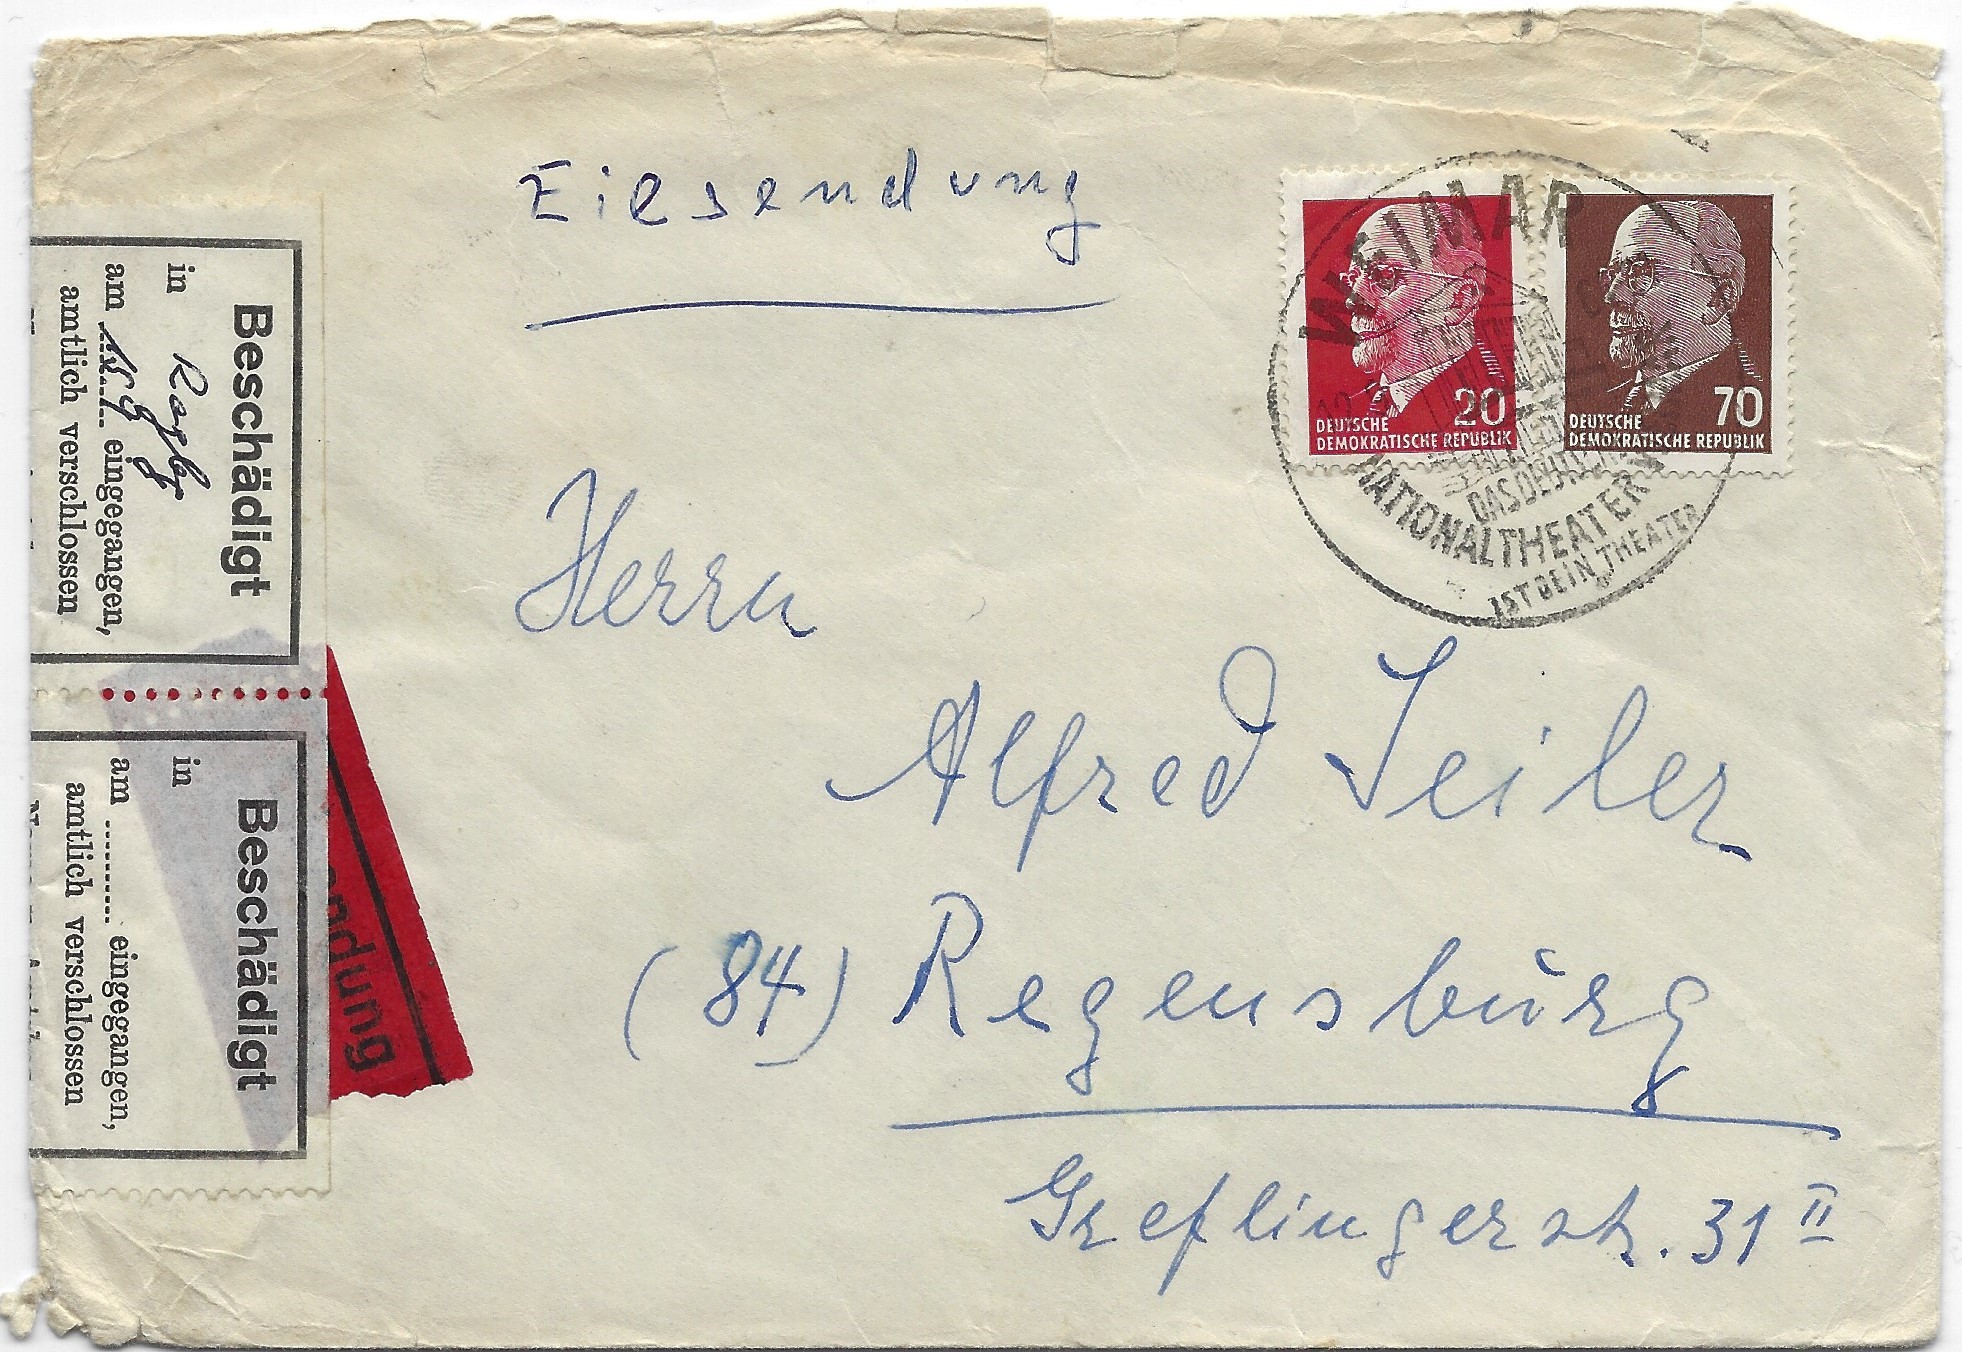 Eilsendung
WEIMAR
20
DEUTSCHE
DEMOKRATISCHE REPUBLIK
70
DEUTSCHE
DEMOKRATISCHE REPUBLIK
NATIONALTHEATER
IST DEIN THEATER
Herrn
Alfred Seiler
(84) Regensburg
Greflingerstr. 31 II
Beschädigt
in
am 15.9. eingegangen,
amtlich verschlossen
Beschädigt
in
am ......... eingegangen,
amtlich verschlossen
endung